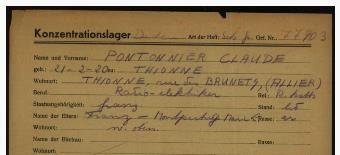 Konzentrationslager Art der Haft: Gef. Nr.: 77903
Name und Vorname: PONTONNIER CLAUDE
geb.: 21-2-20 zu: THIONNE
Wohnort: THIONNE, BRUNETS, (ALLIER)
Beruf: Radio-elektriker Rel.:
Staatsangehörigkeit: franz. Stand:
Name der Eltern: Franz - Rasse:
Wohnort: w. oben.
Name der Ehefrau: Rasse:
Wohnort: